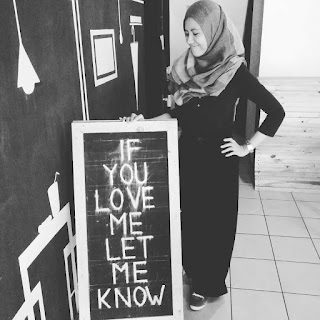 IF
YOU
LOVE
ME
LET
ME
KNOW